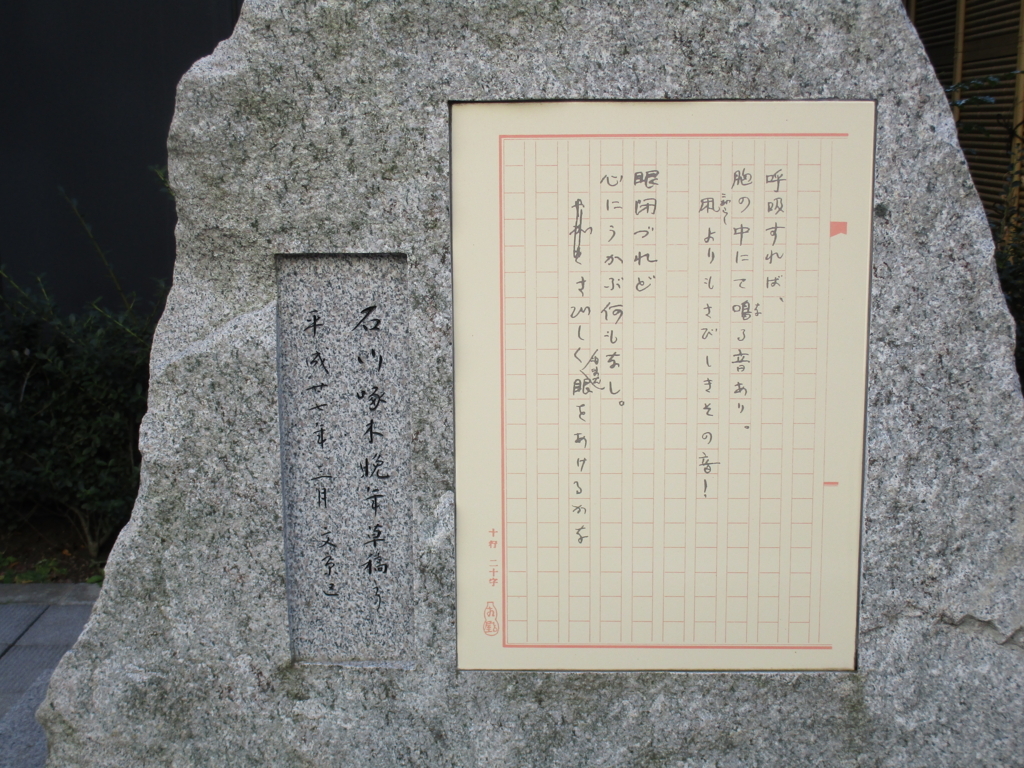 呼吸すれば、
胸の中にて鳴る音あり。
な
凩よりもさびしきその音!
こがらし
眼閉づれど
心にうかぶ何もなし。
さびしくも
また
眼をあけるかな
十行 二十字
石川啄木晩年草稿より
平成廿七年三月 文京区